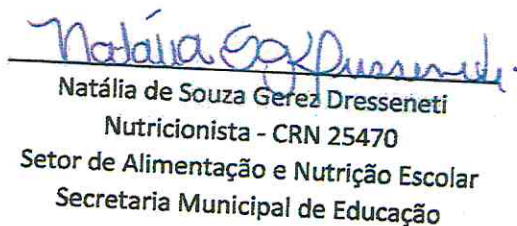 Natália de Souza Gerez Dresseneti
Nutricionista - CRN 25470
Setor de Alimentação e Nutrição Escolar
Secretaria Municipal de Educação